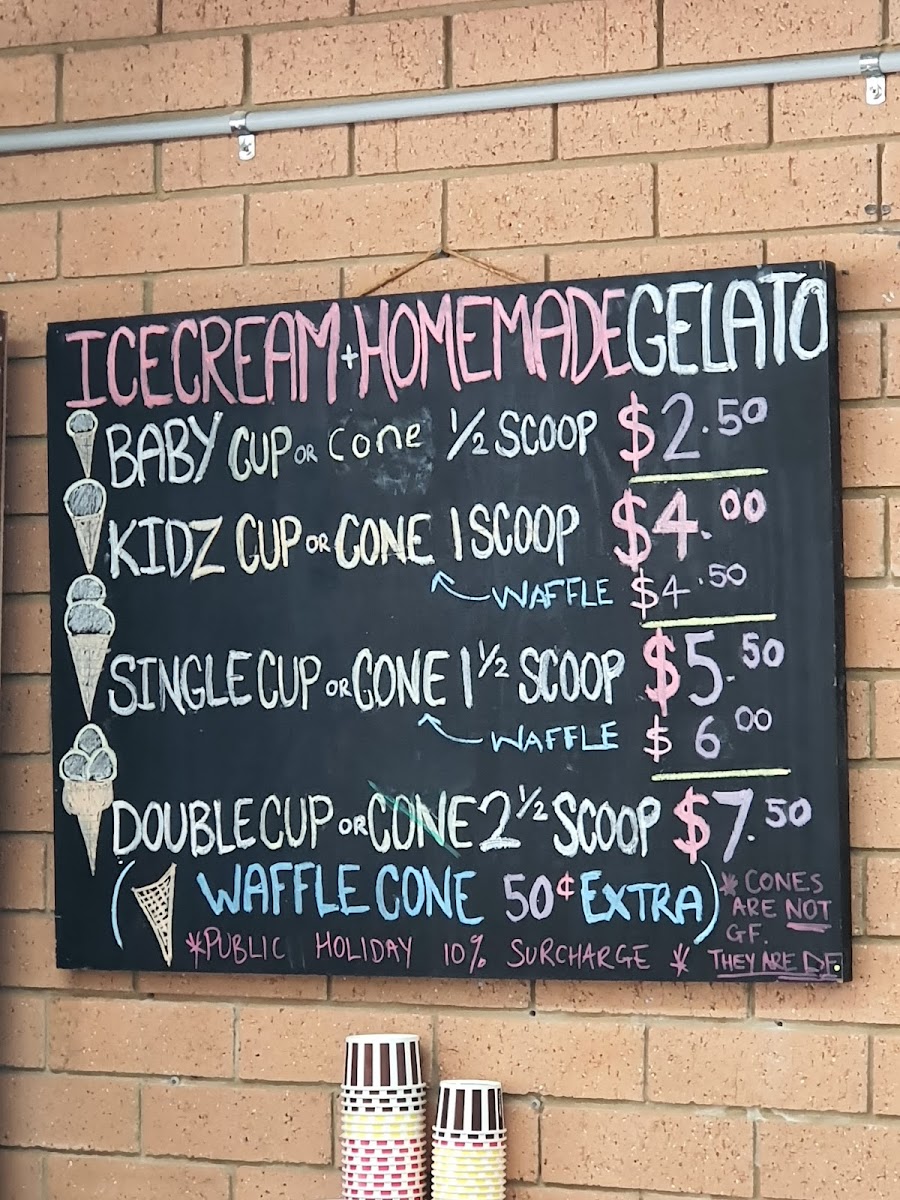 ICECREAM + HOMEMADE GELATO
BABY CUP OR Cone 1/2 SCOOP $2.50
KIDZ CUP OR CONE 1 SCOOP $4.00
WAFFLE $4.50
SINGLE CUP OR CONE 1 1/2 SCOOP $5.50
WAFFLE $6.00
DOUBLE CUP OR CONE 2 1/2 SCOOP $7.50
( WAFFLE CONE 50¢ EXTRA)
*PUBLIC HOLIDAY 10% SURCHARGE *
* CONES
ARE NOT
GF.
THEY ARE DF